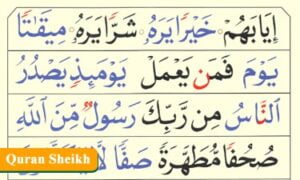 إِيَابَهُمْ خَيْرًا يَرَهُ شَرًّا يَرَهُ مِيقَاتًا
يَوْمَ فَمَن يَعْمَلْ يَوْمَئِذٍ يَصْدُرُ
النَّاسُ مِن رَّبِّكَ رَسُولٌ مِّنَ اللَّهِ
صُحُفًا مُّطَهَّرَةً صَفًّا لَّا
Quran Sheikh